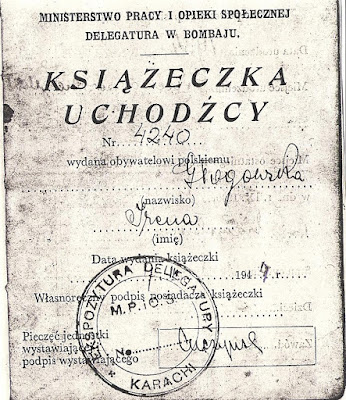 MINISTERSTWO PRACY I OPIEKI SPOŁECZNEJ
DELEGATURA W BOMBAJU.
KSIĄŻECZKA
UCHODŹCY
Nr. 4240
wydana obywatelowi polskiemu
Głogowska
(nazwisko)
Irena
(imię)
Data wydania książeczki
194 r.
Własnoręczny podpis posiadacza książeczki
EKSPOZYTURA DELEGATURY
M.P.iO.S.
No.
KARACHI
Pieczęć jednostki
wystawiającej
podpis wystawiającego